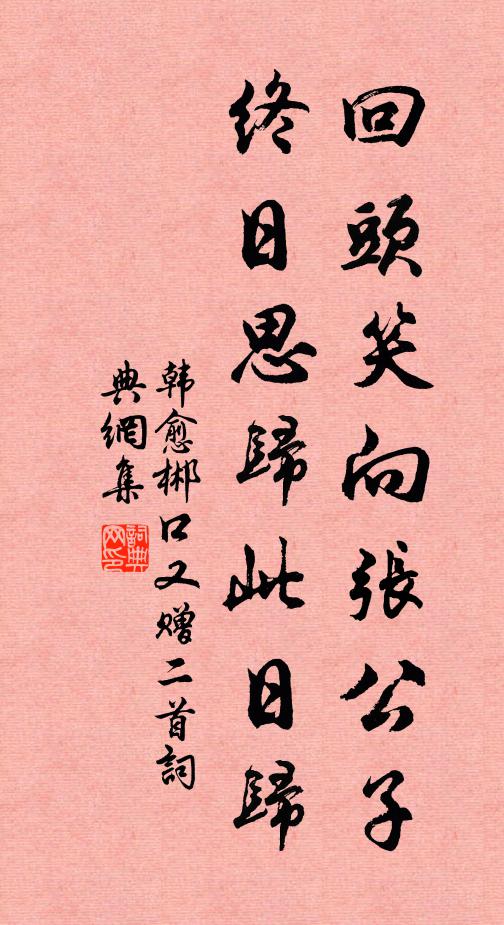 回頭笑向張公子
終日思歸此日歸
韩愈郴口又赠二首詞
典網集
詞典網印